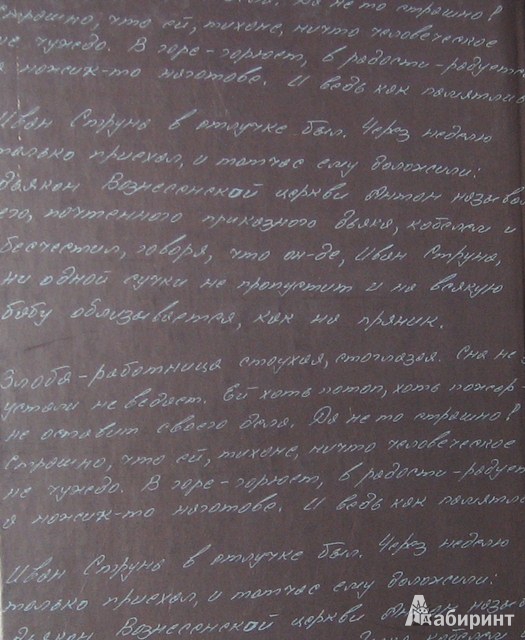 Да не то страшно?
страшно, что ей, тихоне, ничто человеческое
не чуждо. В горе-горюет, в радости-радуется
а ножик-то наготове. И ведь как памятлив
Иван Струна в отлучке был. Через неделю
только приехал, и тотчас ему доложили:
дьякон Вознесенской церкви Антон назывол
его, почтенного приказного дьяка, кобелем и
бесчестил, говоря, что он-де, Иван Струна,
ни одной сучки не пропустит и на всякую
бабу облизывается, как на пряник.
Злоба-работница стоухая, стоглазая. Сна не з
устали не ведает. Ей хоть потоп, хоть пожар
не оставит своего дела. Да не то страшно?
Страшно, что ей, тихоне, ничто человеческое
не чуждо. В горе-горюет, в радости-радует
а ножик-то наготове. И ведь как памятли
Иван Струна в отлучке был. Через неделю
только приехал, и тотчас ему доложили:
дьякон Вознесенской церкви Антон назыв
Лабиринт